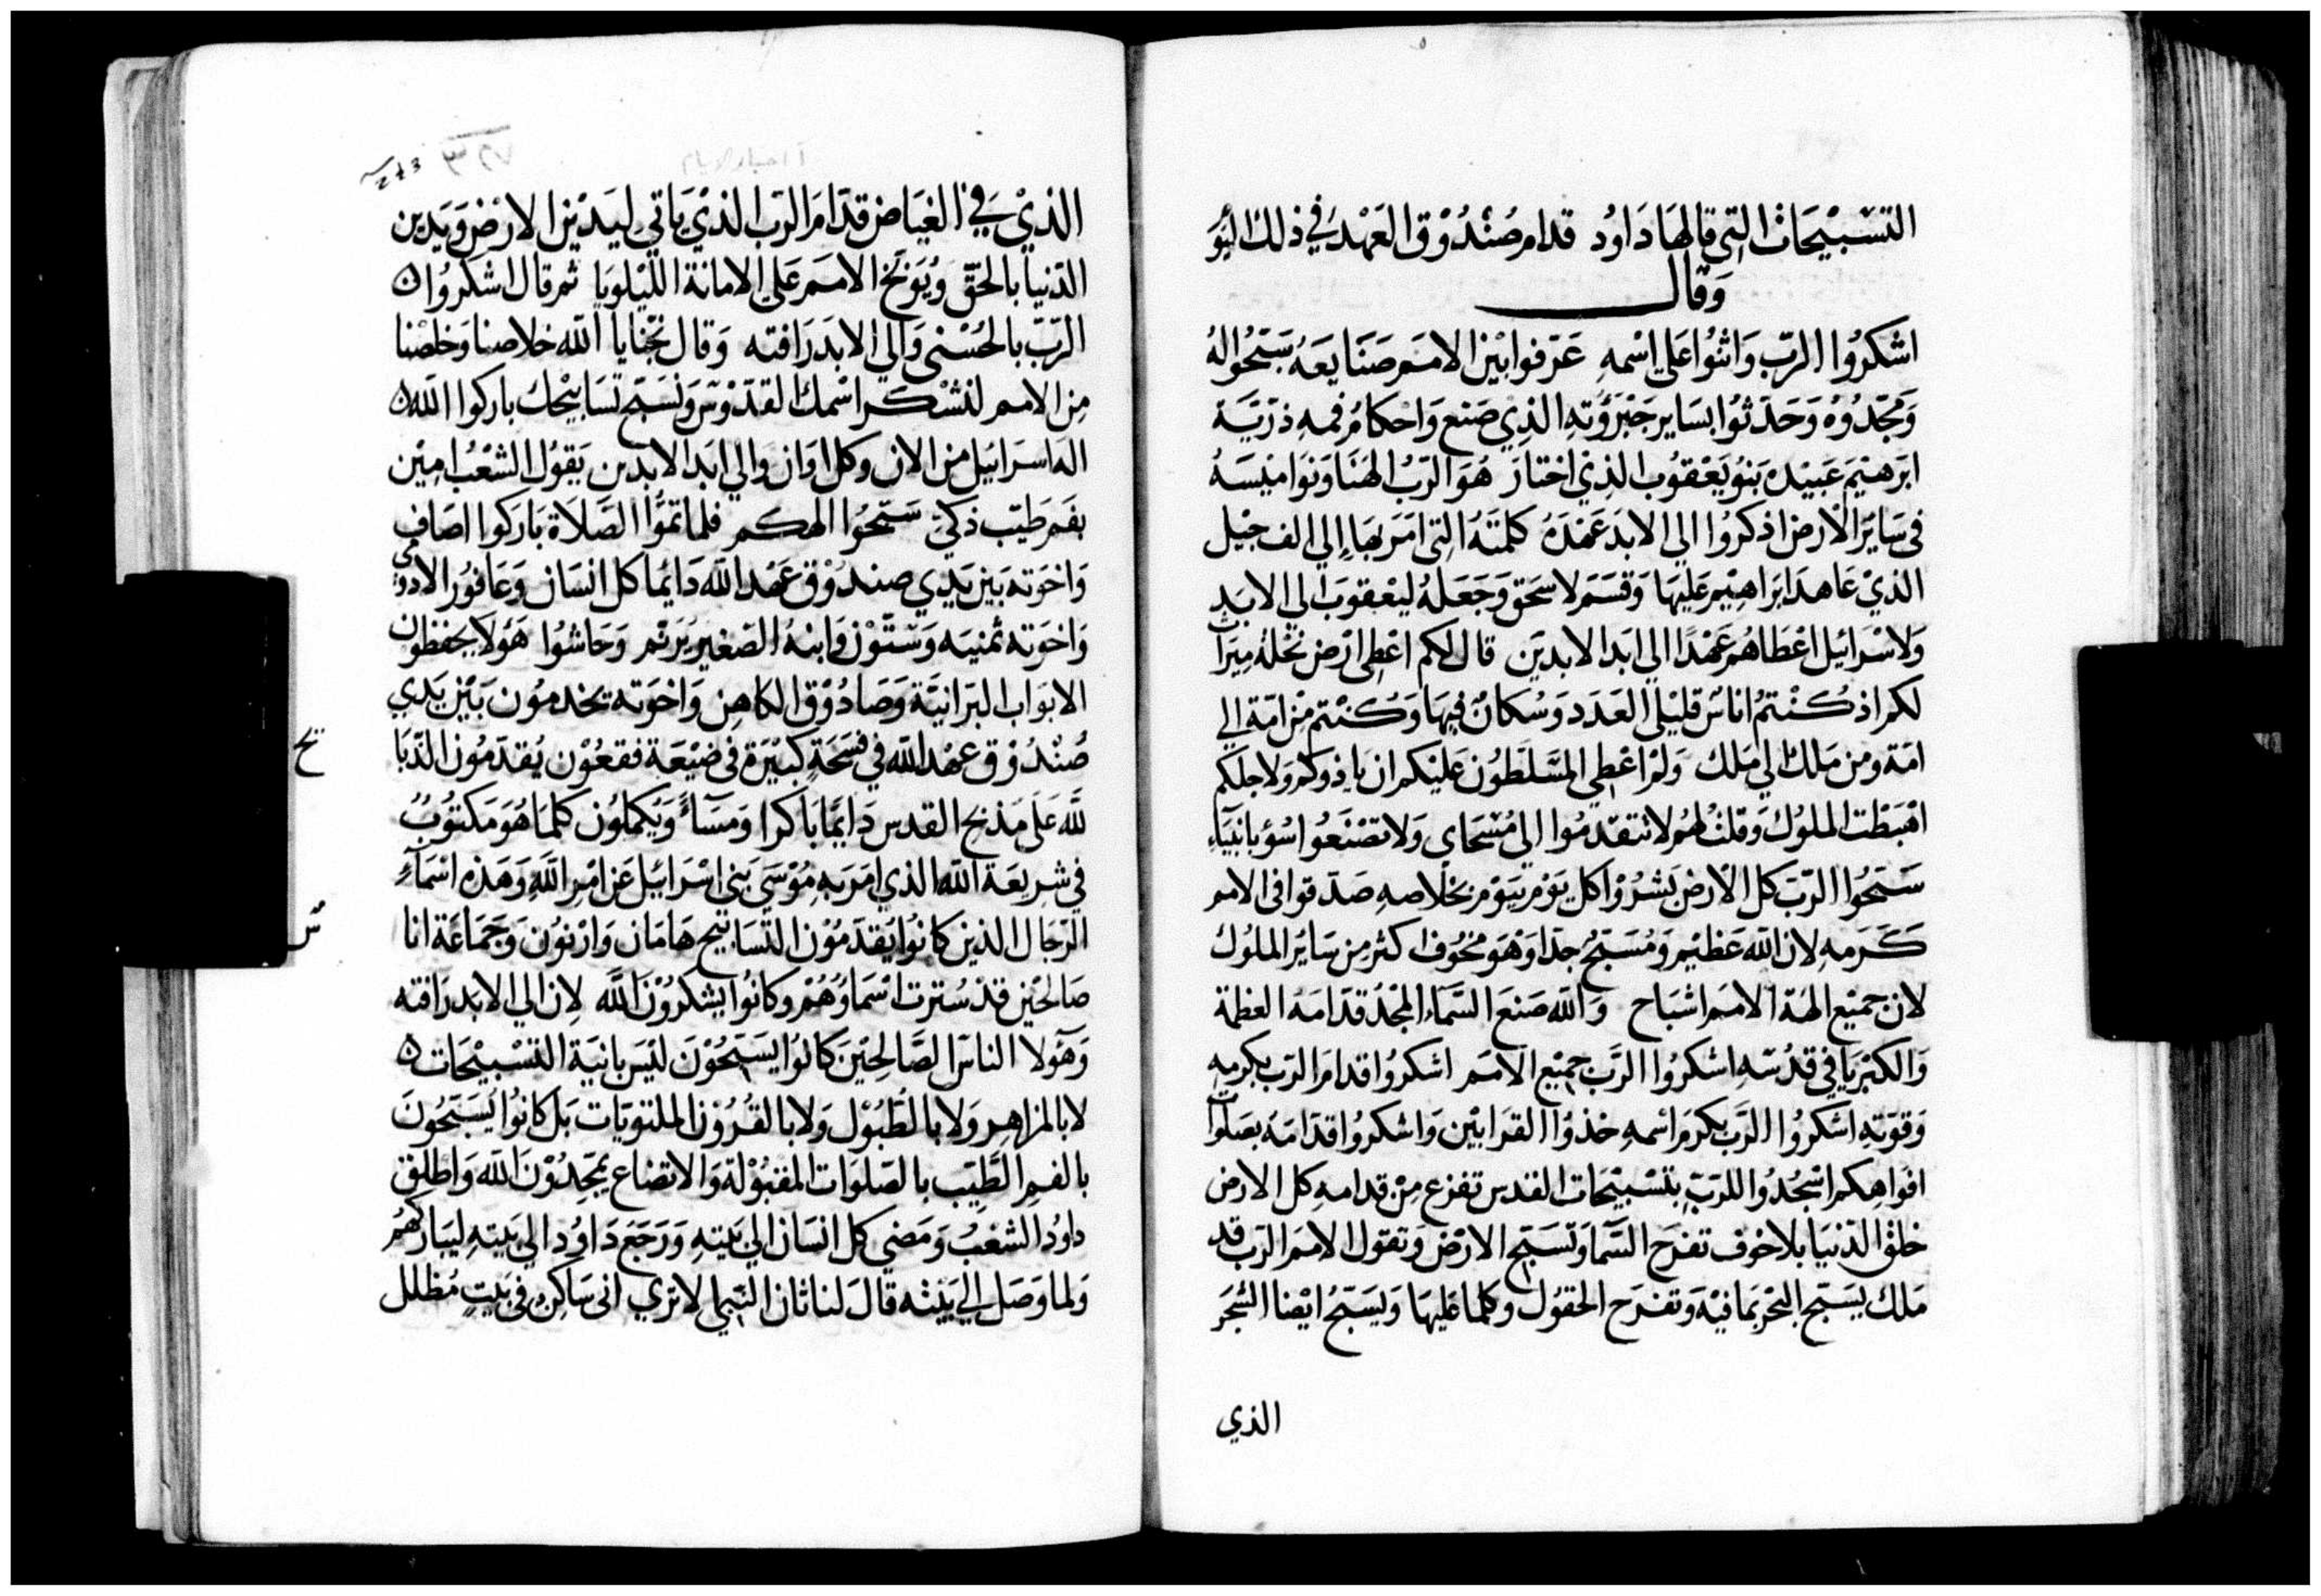 التسْبيْحَاتْ التِي قالهَا دَاوُد قدام صُنْدُوْق العَهْد في ذلك اليَوْ
وَقال
اشكرُوا الرّب وَاثنُوا عَلى اسْمهِ عَرّفوا بَيْن الامَم صَنَايعَهُ سَبّحُوا لهُ
وَمَجّدُوْهُ وَحَدّثوُا بسَاير جَبْرَوُتهِ الذِي صَنع وَاحْكامُ فمهِ ذرّيَّة
ابَرهيْمَ عَبيْده بَنُو يَعْقوُب الذِيْ اختارَ هُوَ الرّبُ الهَنَا وَنوَاميْسَهُ
في سَاير الارْض اذكرُوا الي الابَد عَهْدَهُ كلمتَهُ التِي امَر بهَا إلي الف جيْل
الذيْ عَاهدَ ابَراهِيْم عَليْهَا وَقسَم لاسحَق وَجَعَلهُ ليَعْقوبَ الي الابَد
وَلاسْرائيل اعْطاهُم عَهْدًا الي ابَد الابدين قال لكم اعْطي ارْض نحْلهُ مِيرَاث
لكم اذ كُنْتمُ اناسٌ قليْلي العَدَد وَسُكانٌ فيهَا وَكُنْتم مِن امّة الي
امّة ومن مَلك الي مَلك وَلمْ اعْطِي المسَّلطوُن عَليْكم ان ياذوكم وَلاجلكم
اهْبَطْت الملوُك وَقلتْ لهُم لا تتقدّمُوا الي مُسْحَاي وَلا تصْنَعُوا سُؤ بانبيَاءِ
سَبّحُوا الرّبَ كل الارْض بَشرُوْا كل يَوْم بيَوْم بخلاصهِ صَدّقوا في الامم
كَرَمهِ لان الله عَظيْم وَمُسَبّحٌ جدًا وَهْوَ مخوُف اكثر مِن سَاير الملوُك
لان جميْع الهَة الامَم اشبَاح وَالله صَنعَ السَّمآء المجْدُ قدّامَهُ العظمة
وَالكبْريَا في قدْسهِ اشكروُا الرَّب جميْع الامَم اشكروُا قدام الرّب بكرمهِ
وَقوّتهِ اشكروُا الرَّب بكرم اسْمهِ خذوُا القرَابيْن وَاشكروُا قدّامَهُ بصَلوات
افوَاهِكم اسْجُدُوا للرَبّ بتسْبيْحَات القدس تفزع مِنْ قدامهِ كل الارض
خلقْ الدّنيَا بلا خوف تفرَح السَّمآ وَتسَبّح الارْض وَتقول الامَم الرّب قد
مَلك يسَبّح البَحْر بمَا فيْه وَتفرَح الحقوُل وكلما عَليهَا وَيسَبّحُ ايْضا الشجَر
الذي
243
الذيْ في الغيَاض قدّام الرّب الذيْ يَاتي ليَديْن الارْض وَيَدين
الدّنيا بالحَقّ وَيُوَبّخ الامَم عَلي الامانة اللّيْلويَا ثم قال اشكرُوا
الرّبّ بالحُسْني وَالي الابَد رَافته وَقال نجّنا يا الله خلاصنا وَخلصْنا
مِن الامم لنشْكر اسْمك القدّوْسَ وَنسَبّح تسَابيْحك باركوا الله
اله اسرَائيل من الان وكل اوَان والي ابد الابدين يَقوُل الشعْبُ امِيْن
بفم طيّب ذكيّ سَبّحُوا الهكم فلما تمّوا الصَّلاَة بَاركوا اصَاف
وَاخوَته بَين يَدي صندُوْق عَهْد الله دَايمًا كل انسَان وَعَافوُر الادومي
وَاخوَته ثمنيَه وَستّوْن وَابنهُ الصَغير يرَتم وَحَاشوُا هَؤلا يحفظون
الابوَاب البَرّانيَّة وَصَادُوْق الكاهِن وَاخوَته يخدمُون بَيْن يَدي
صُنْدُوْق عهْد الله في فسَحَةٍ كبيْرَة في ضيْعَة قبعُوْن يُقدّمُون الذبَا
تح
لله عَلى مَذبح القدس دَايمًا بَاكرًا وَمسَآءً وَيُكمّلوُن كلمَا هُوَ مَكتوُبٌ
في شريعَة الله الذي امَر بهِ مُوْسَي بَني اسْرَائيل عَن امْر الله وَهَذه اسْمَآءِ
الرّجَال الذين كانوُا يقدّمُوْن التّسَابيح هَامَان وَارْنوُن وَجَمَاعَة انا
س
صَالحْين قدْ سُترت اسْمَاوهُمْ وكانوُا يَشكرُوْن الله لِان الي الابد رَافته
وَهَؤلا الناسّ الصَّالحِيْن كانوُا يسَبّحُوْن ليْسَ بانيَة التّسْبيْحَات
لا بالمزاهِر وَلا بالطبُوْل وَلا بالقرُوْن الملتويَات بَل كانوُا يُسَبّحُونَ
بالفمِ الطَّيّب بالصّلوَات المقبُوْلة وَالاتضاع يمجّدُوْنَ الله وَاطلق
داوُد الشعْبُ وَمَضي كل انسَان الي بَيتهِ وَرَجَعَ دَاوُد الي بَيتهِ ليبَاركهُم
وَلما وَصَل الي بَيْته قال لناثان النّبي اما لا تري اني سَاكِن في بَيتٍ مُظلل